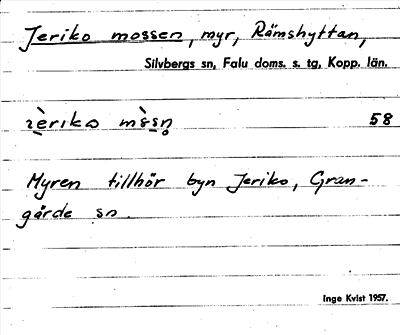 Jeriko mossen, myr, Rämshyttan,
Silvbergs sn, Falu doms. s. tg, Kopp. län.
58
Myren tillhör byn Jeriko, Gran-
gärde sn.
Inge Kvist 1957.